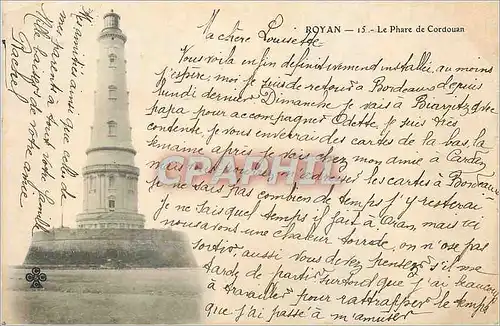 ROYAN — 15 - Le Phare de Cordouan
Ma chère Louisette
Vous voilà enfin définitivement installée, au moins
j'espère, moi je suis de retour à Bordeaux depuis
lundi dernier Dimanche je vais à Biarritz avec
papa pour accompagner Odette, je suis très
contente, je vous enverrai des cartes de là bas, la
semaine après je vais chez mon amie à
mais les cartes à Bordeaux
je ne sais pas combien de temps j'y resterai
Je ne sais quel temps il fait à mais ici
nous avons une chaleur torride, on n'ose pas
sortir, aussi vous devez penser s'il me
tarde de partir surtout que j'ai beaucoup
à travailler pour rattrapper le temps
que j'ai passé à m'amuser
Mes amitiés ainsi que celle de
mes parents à toute votre famille
Mille baisers de votre amie
CPARAMA.COM